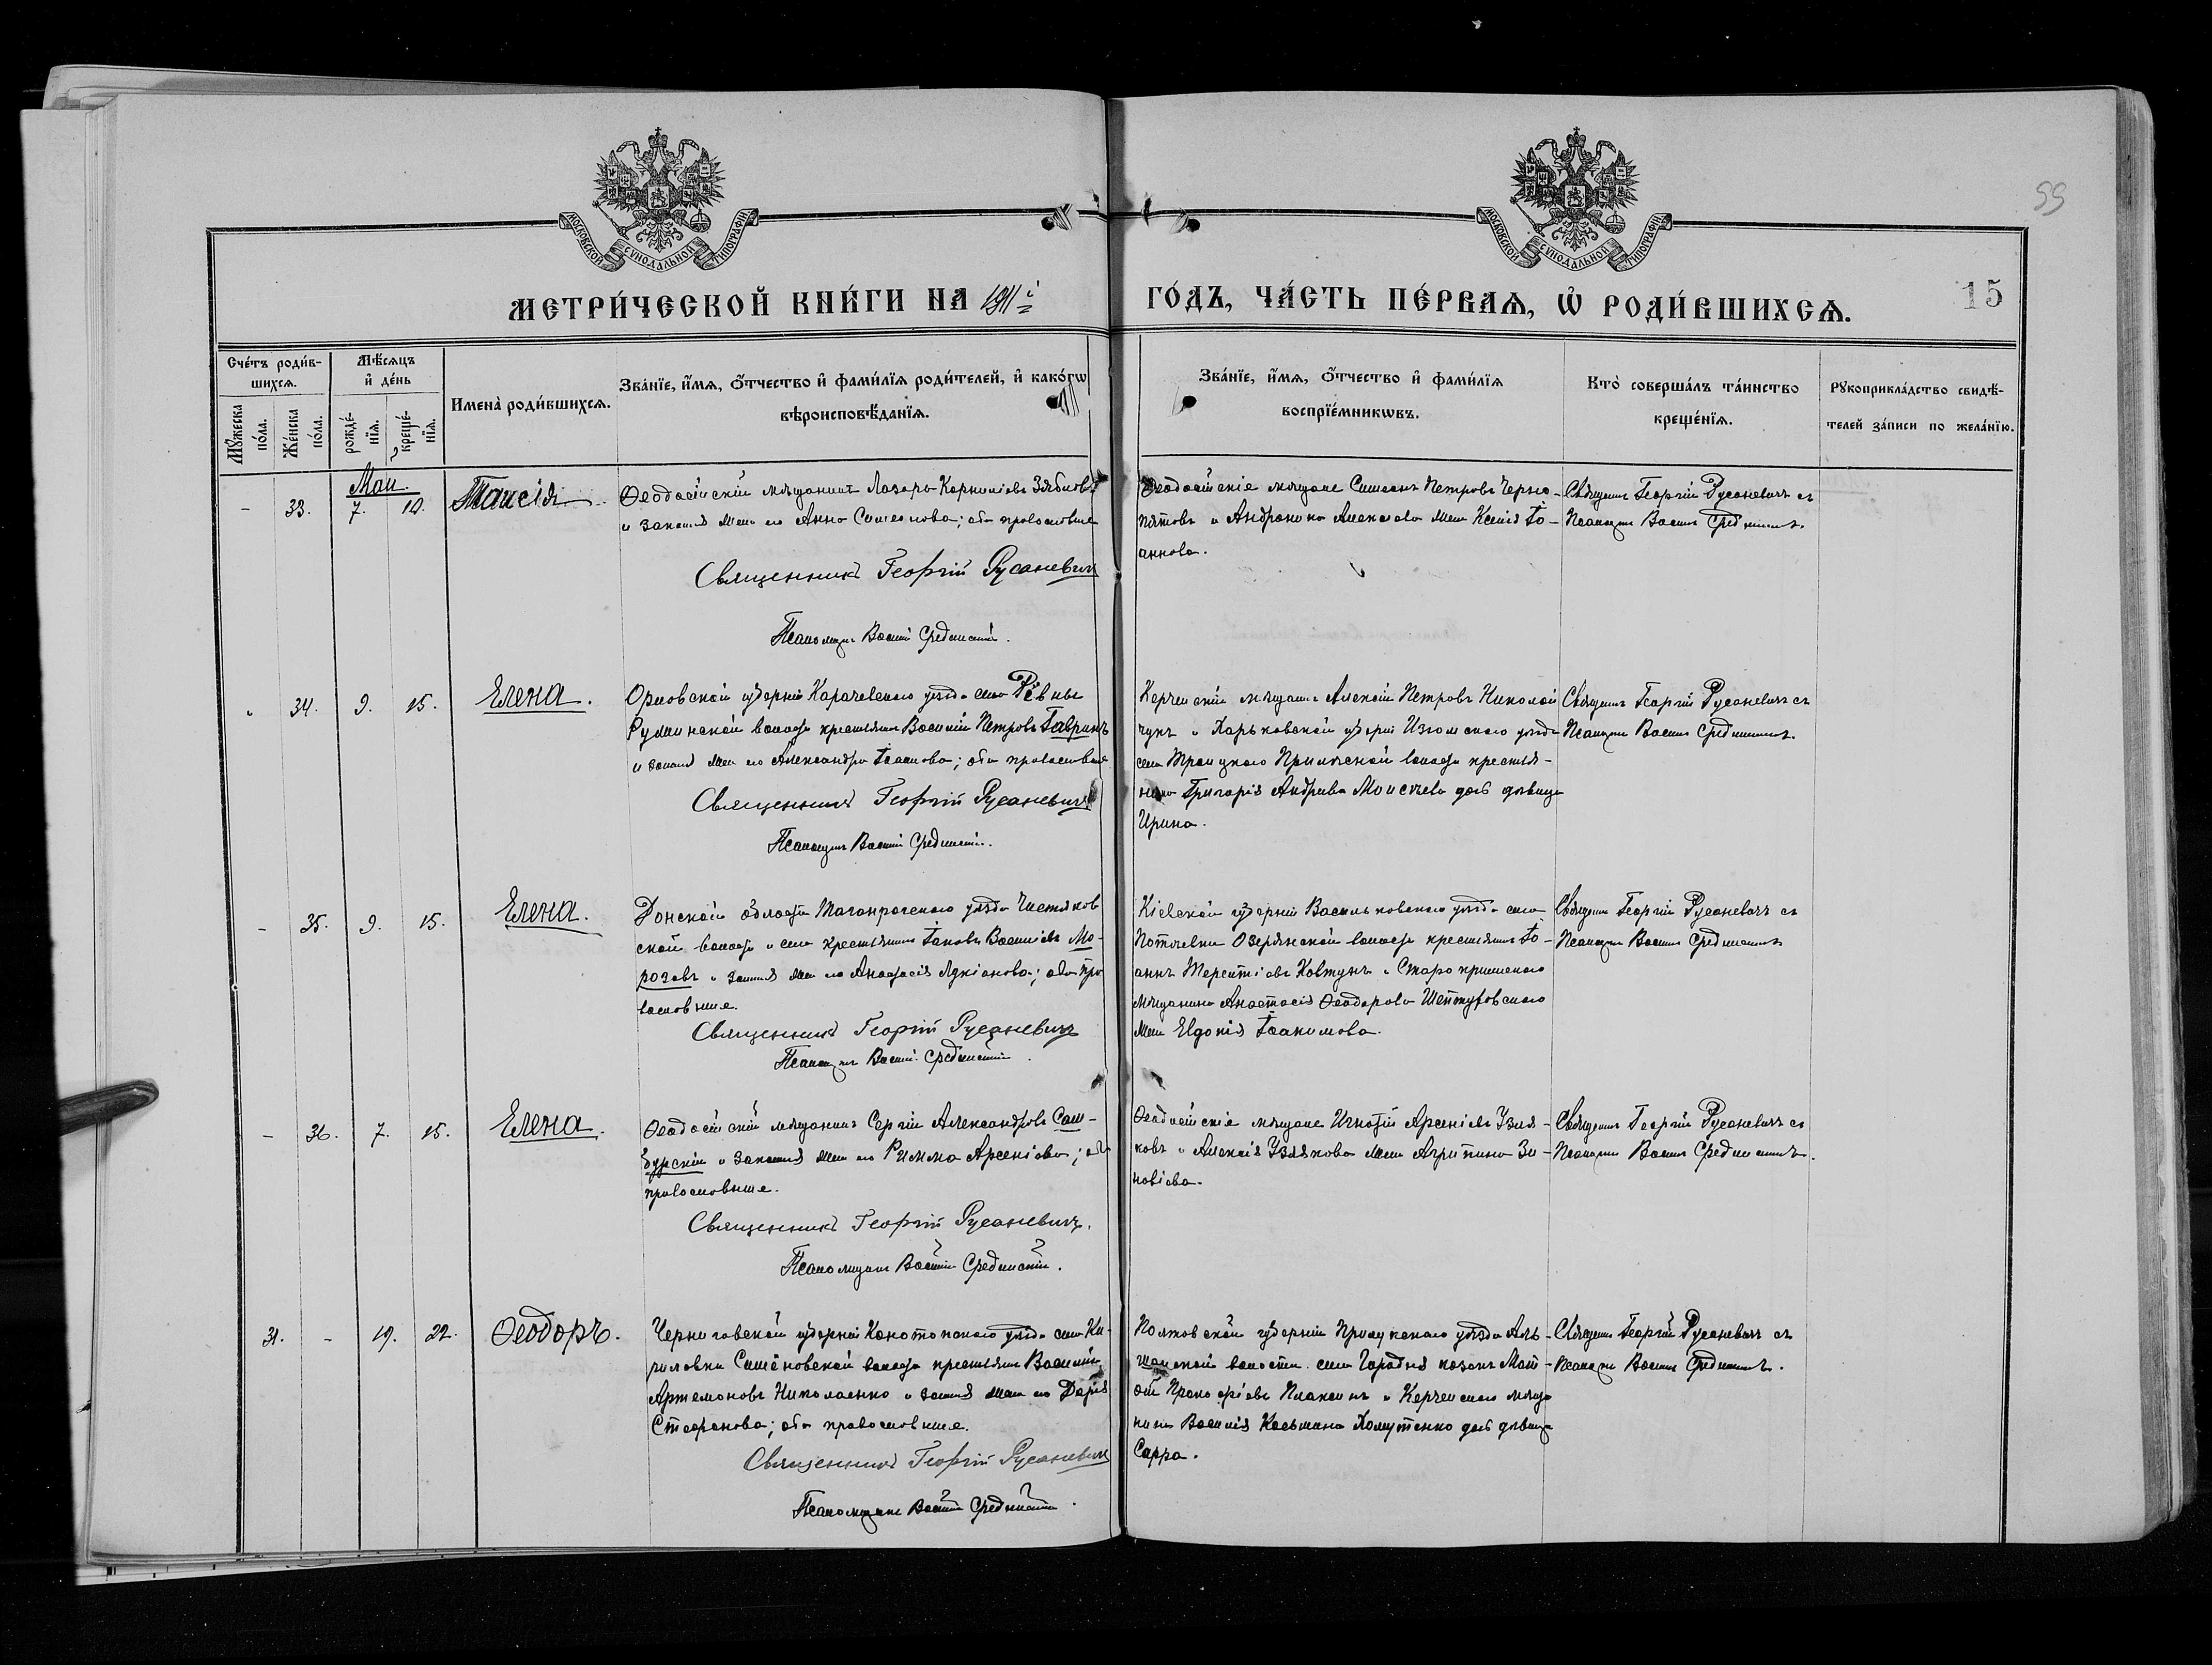 МОСКОВСКОЙ СѴНОДАЛЬНОЙ ТИПОГРАФІИ
МОСКОВСКОЙ СѴНОДАЛЬНОЙ ТИПОГРАФІИ
59
МЕТРИ́ЧЕСКОЙ КНИ́ГИ НА 1911й
ГО́ДЪ, ЧА́СТЬ ПЕ́РВАѦ, Ѡ҆ РОДИ́ВШИХСѦ.
15
Сче́тъ роди́в-
шихсѧ.
Мѣ́сѧцъ
и҆ де́нь
Имена̀ роди́вшихсѧ.
Зва́нїе, и҆́мѧ, ѻ҆́тчество и҆ фами́лїѧ роди́телей, и҆ како́гѡ
вѣроисповѣ́данїѧ.
Зва́нїе, и҆́мѧ, ѻ҆́тчество и҆ фами́лїѧ
воспрїе́мникѡвъ.
Кто̀ соверша́лъ та́инство
креще́нїѧ.
Рꙋкоприкла́дство свидѣ́-
телей за́писи по жела́нїю.
Мꙋ́жеска
по́ла.
Же́нска
по́ла.
рожде́-
нїѧ.
креще́-
нїѧ.
Маи.
- 33. 7. 10. Таисія
Ѳеодосійскій мѣщанинъ Лазарь Корниліовъ Зябловъ
и законная жена его Анна Симеонова; оба православные
Священникъ Георгій Русаневичъ
Псаломщикъ Василій Срединскій.
Ѳеодосійскіе мѣщане Симеонъ Петровъ Черно-
пятовъ и Андроника Алексѣева жена Ксенія Іо-
аннова.
Священникъ Георгій Русаневичъ съ
Псаломщ. Васил. Срединскимъ.
34. 9. 15. Елена.
Орловской губерніи Карачевскаго уѣзда села Рёвны
волости крестьянинъ Василій Петровъ Гавринъ
и законная жена его Александра; оба православные
Священникъ Георгій Русаневичъ
Псаломщикъ Василій Срединскій.
Керченскій мѣщанинъ Алексій Петровъ Николай
чукъ и Харьковской губерніи Изюмскаго уѣзда
села Троицкаго волости крестья-
нина Григорія Андріева Моисѣева дочь дѣвица
Ирина.
Священникъ Георгій Русаневичъ съ
Псаломщ. Васил. Срединскимъ.
- 35. 9. 15. Елена.
Донской области Таганрогскаго уѣзда Чистяков
ской волости и села крестьянинъ Іаковъ Василіевъ Мо-
розовъ и законная жена его Анастасія Лукіанова; оба пра
вославные.
Священникъ Георгій Русаневичъ
Псаломщикъ Василій Срединскій.
Кіевской губерніи Васильковскаго уѣзда села
Поточевки Озерянской волости крестьянинъ Іо-
аннъ Терентіевъ Ковтунъ и Старокрымскаго
мѣщанина Анастасія Ѳеодорова
жена Евдокія Іоакимова.
Священникъ Георгій Русаневичъ съ
Псаломщ. Васил. Срединскимъ
- 36. 7. 15. Елена.
Ѳеодосійскій мѣщанинъ Сергій Александровъ Сам-
бурскій и законная жена его Римма Арсеніова; оба
православные.
Священникъ Георгій Русаневичъ.
Псаломщикъ Василій Срединскій.
Ѳеодосійскіе мѣщане Игнатій Арсеніевъ Узля-
ковъ и Алексія Узлякова жена Агрипина Зи-
новіева.
Священникъ Георгій Русаневичъ съ
Псаломщ. Васил. Срединскимъ.
31. - 19. 22. Ѳеодоръ.
Черниговской губерніи Конотопскаго уѣзда села Ки-
риловки Симёновской волости крестьянинъ Василій
Артемоновъ Николаенко и законная жена его Дарія
Стефанова; оба православные.
Священникъ Георгій Русаневичъ
Псаломщикъ Василій Срединскій.
Полтовской губерніи Прилукскаго уѣзда Аль-
шанской волости села Городня козакъ Мат-
ѳій Прокофіевъ Плаксинъ и Керченскаго мѣща
нина Василія Косьмина Хомутенко дочь дѣвица
Сарра.
Священникъ Георгій Русаневичъ съ
Псаломщ. Васил. Срединскимъ.